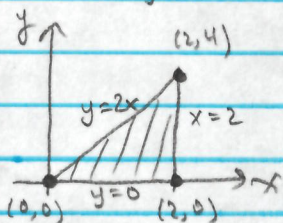 y
(2,4)
y=2x
x=2
y=0
x
(0,0)
(2,0)